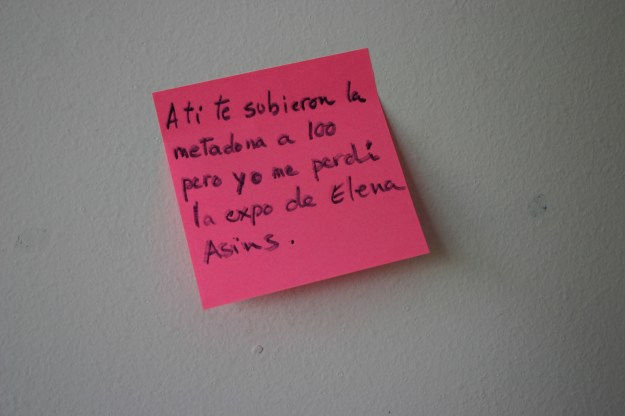 A ti te subieron la
metadona a 100
pero yo me perdí
la expo de Elena
Asins.